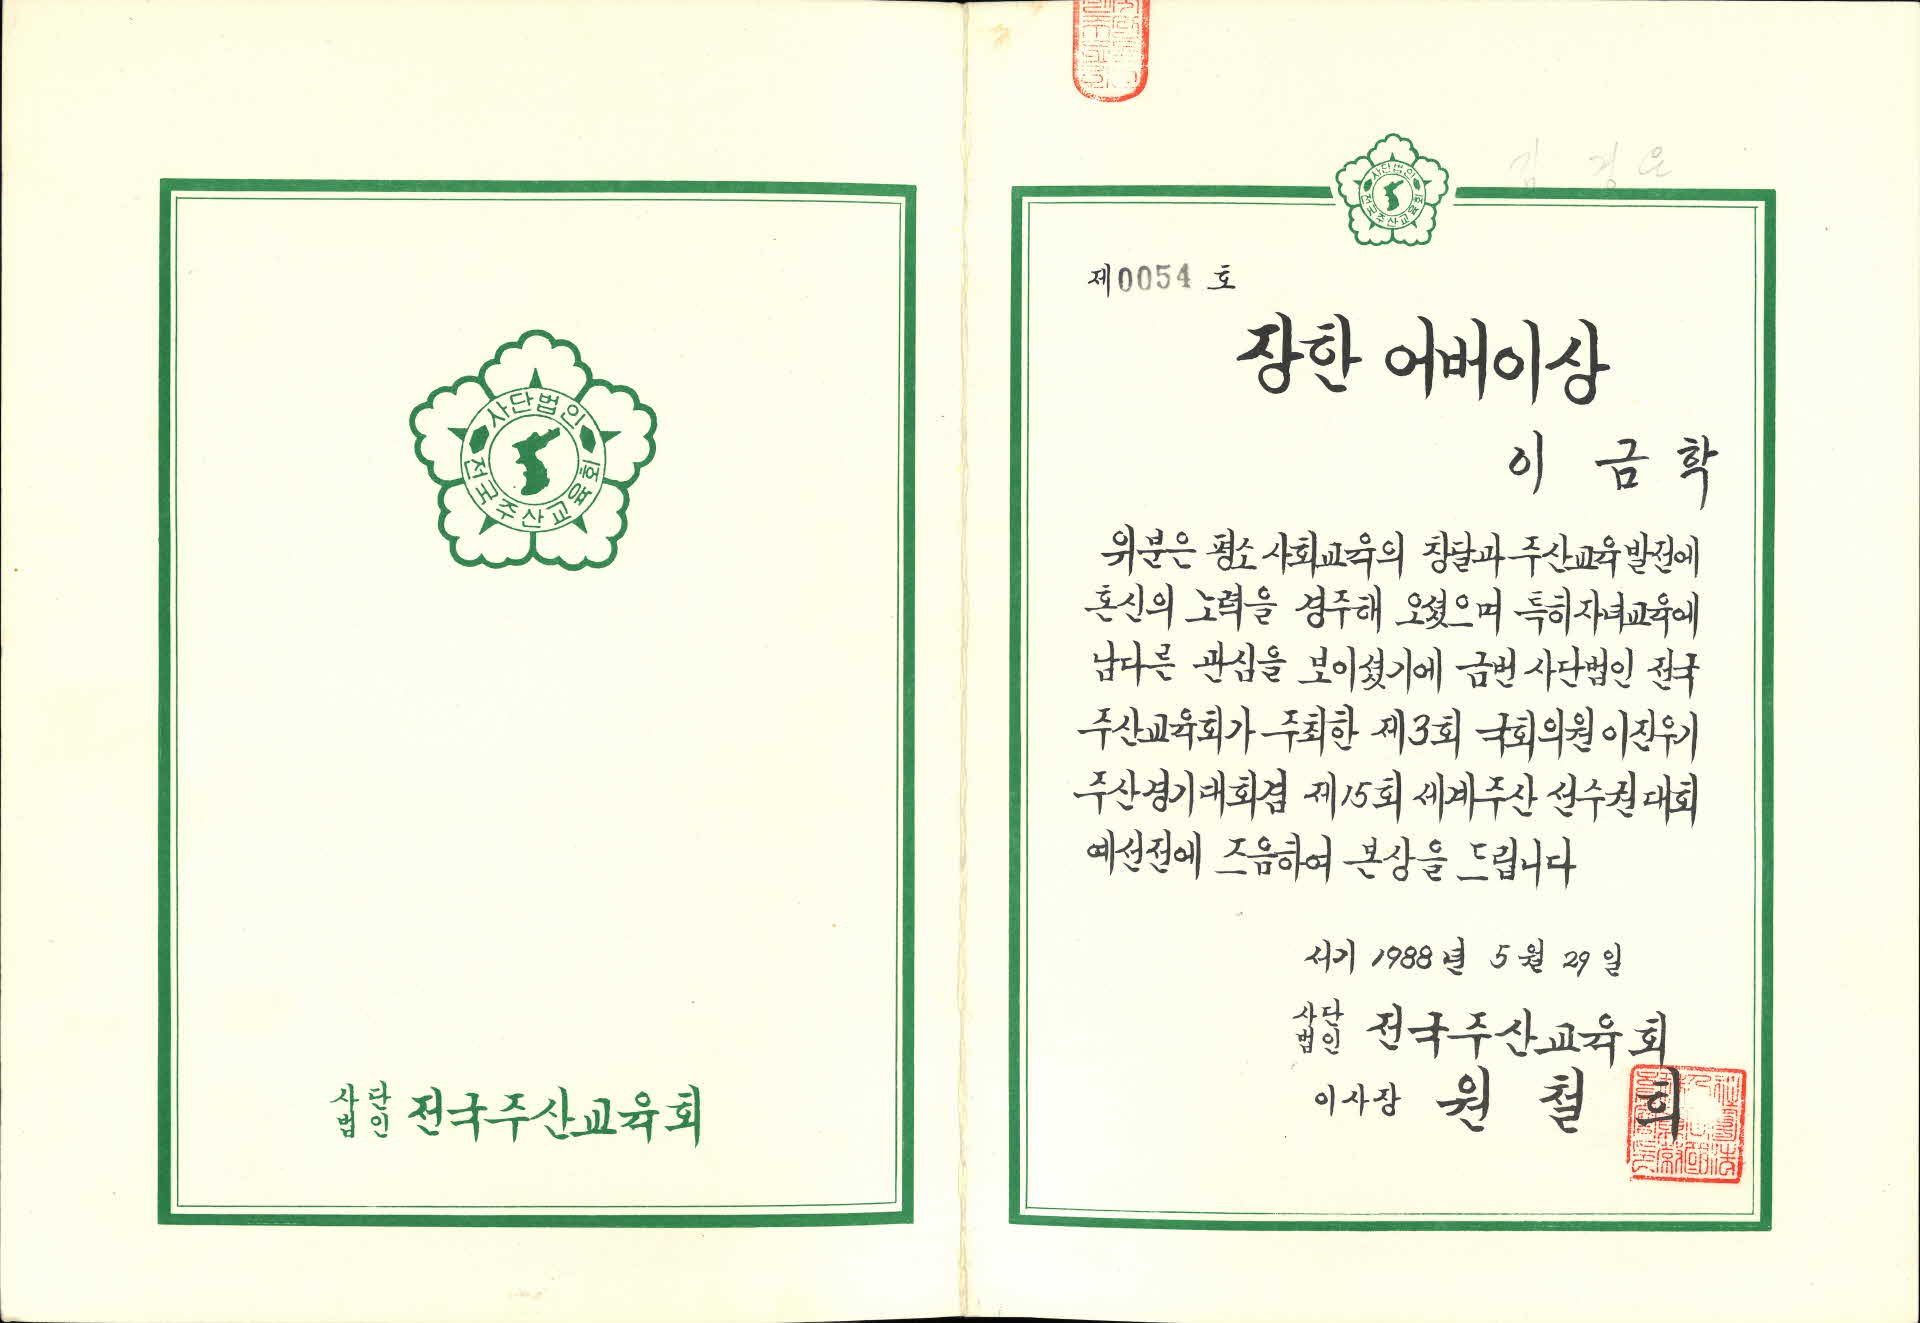 사단법인
전국주산교육회
사단법인 전국주산교육회
사단법인
전국주산교육회
제0054 호
장한 어버이상
이 금 학
위분은 평소 사회교육의 창달과 주산교육발전에
혼신의 노력을 경주해 오셨으며 특히자녀교육에
남다른 관심을 보이셨기에 금번 사단법인 전국
주산교육회가 주최한 제3회 국회의원 이진우기
주산경기대회겸 제15회 세계주산 선수권대회
예선전에 즈음하여 본상을 드립니다
서기 1988년 5월 29일
사단법인 전국주산교육회
이사장 원 철 희